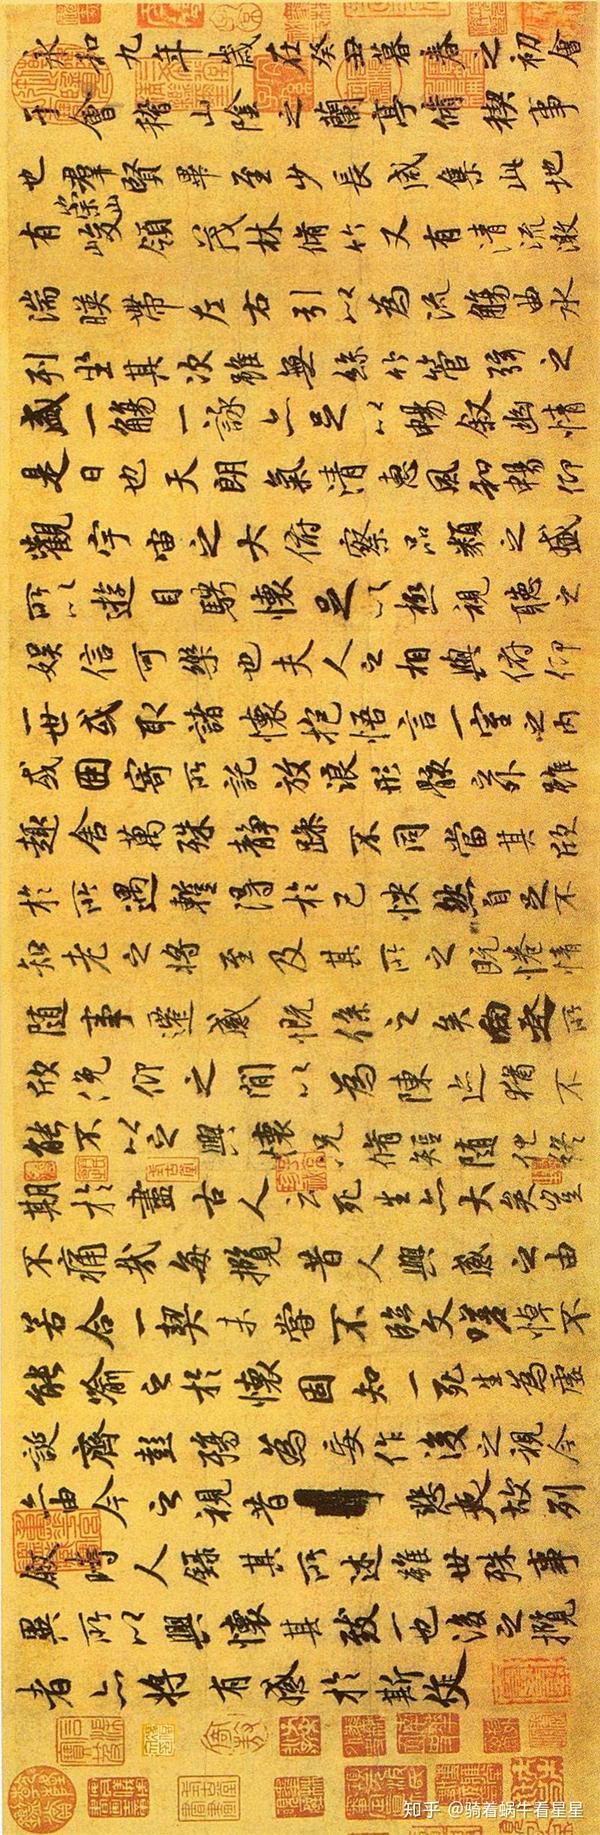 永和九年歲在癸丑暮春之初會
于會稽山陰之蘭亭脩稧事
也羣賢畢至少長咸集此地
有崇山峻領茂林脩竹又有清流激
湍暎帶左右引以為流觴曲水
列坐其次雖無絲竹管弦之
盛一觴一詠亦足以暢叙幽情
是日也天朗氣清惠風和暢仰
觀宇宙之大俯察品類之盛
所以遊目騁懷足以極視聽之
娛信可樂也夫人之相與俯仰
一世或取諸懷抱悟言一室之內
或因寄所託放浪形骸之外雖
趣舍萬殊靜躁不同當其欣
於所遇蹔得於己怏然自足不
知老之將至及其所之既惓情
隨事遷感慨係之矣向之所
欣俛仰之閒以為陳迹猶不
能不以之興懷況脩短隨化終
期於盡古人云死生亦大矣豈
不痛哉每攬昔人興感之由
若合一契未嘗不臨文嗟悼不
能喻之於懷固知一死生為虛
誕齊彭殤為妄作後之視今
亦由今之視昔悲夫故列
敘時人錄其所述雖世殊事
異所以興懷其致一也後之攬
者亦將有感於斯文
知乎 @骑着蜗牛看星星